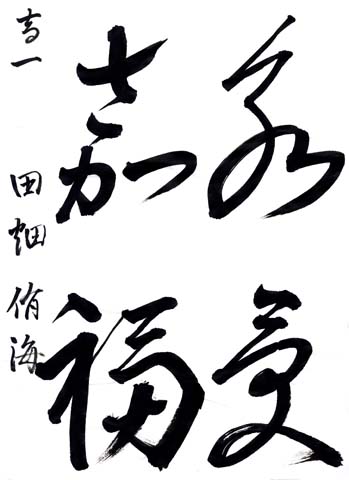 永受
嘉福
高一 田畑 侑海